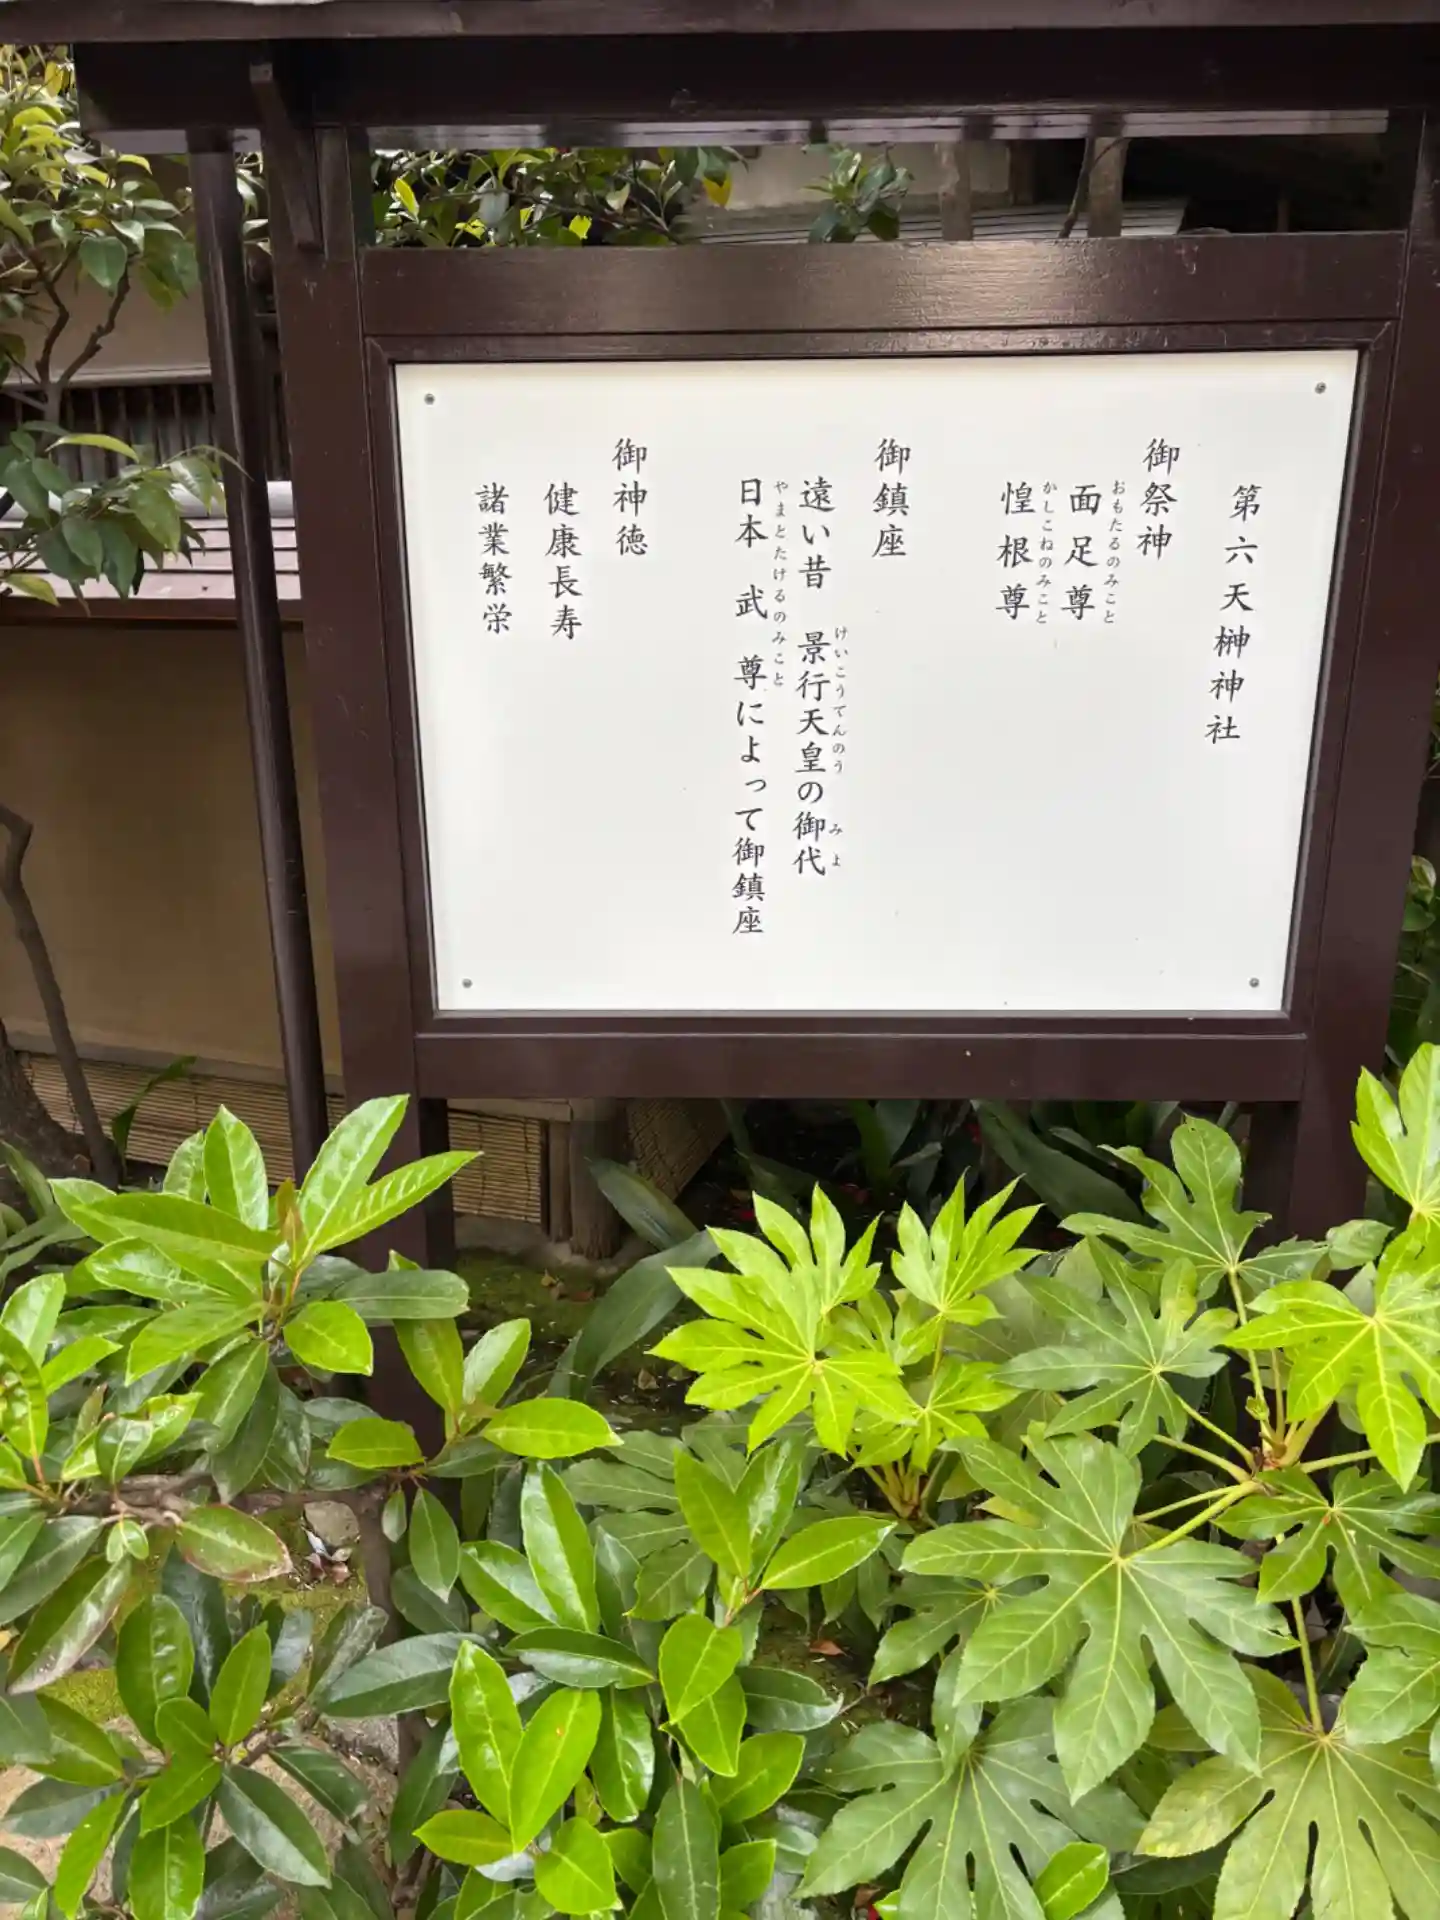 第六天榊神社
御祭神
面足尊
おもたるのみこと
惶根尊
かしこねのみこと
御鎮座
遠い昔 景行天皇の御代
けいこうてんのう みよ
日本 武 尊によって御鎮座
やまとたけるのみこと
御神徳
健康長寿
諸業繁栄